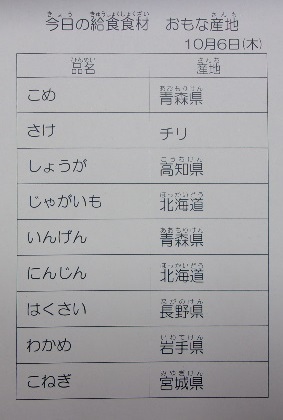 今日の給食食材　おもな産地
10月6日(木)
品名 産地
こめ 青森県
さけ チリ
しょうが 高知県
じゃがいも 北海道
いんげん 青森県
にんじん 北海道
はくさい 長野県
わかめ 岩手県
こねぎ 宮城県